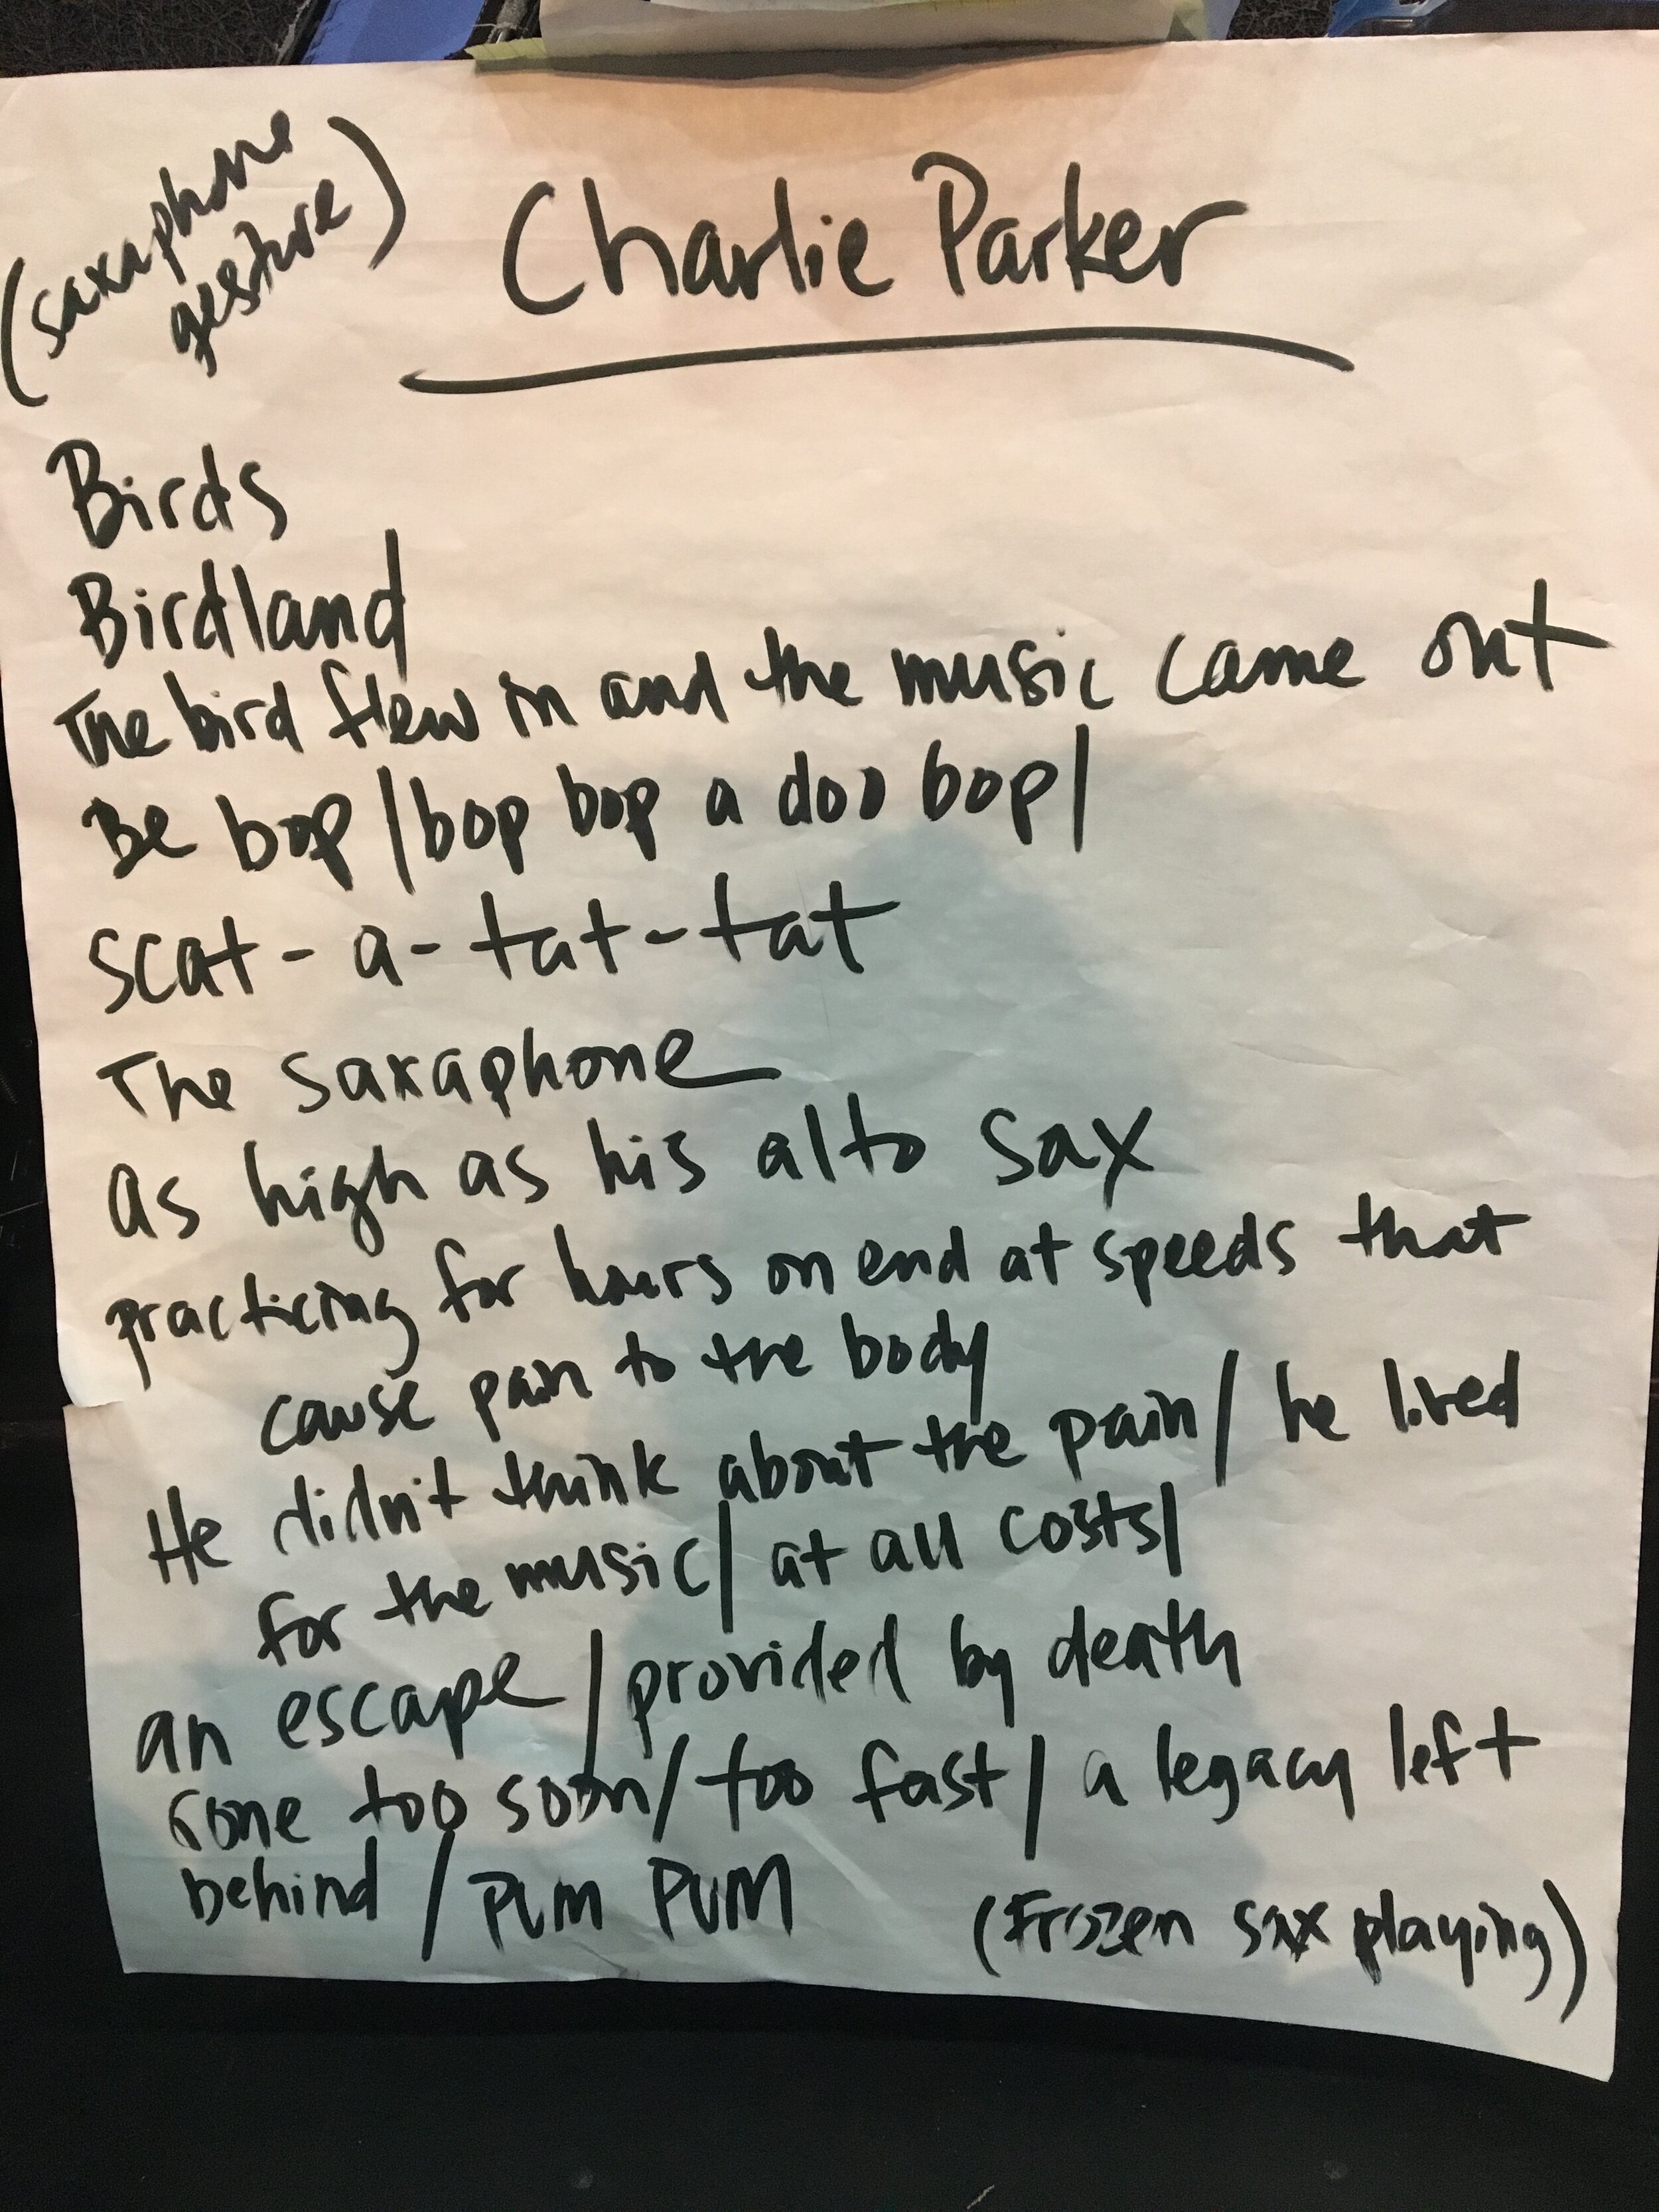 (saxaphone
gesture)
Charlie Parker
Birds
Birdland
The bird flew in and the music came out
Be bop / bop bop a doo bop /
scat-a-tat-tat
The saxaphone
as high as his alto sax
practicing for hours on end at speeds that
cause pain to the body
He didn't think about the pain / he lived
for the music / at all costs /
an escape / provided by death
Gone too soon / too fast / a legacy left
behind / PUM PUM
(Frozen sax playing)